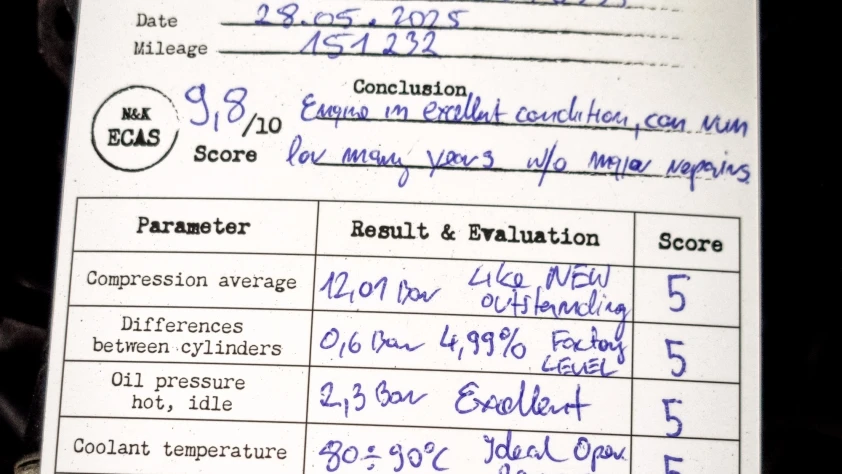 Date 28.05.2025
Mileage 151 232
Conclusion
N&K ECAS
9,8/10
Score
Engine in excellent condition, can run
for many years w/o major repairs
Parameter Result & Evaluation Score
Compression average 12,01 Bar Like NEW outstanding 5
Differences between cylinders 0,6 Bar 4,99% Factory LEVEL 5
Oil pressure hot, idle 2,3 Bar Excellent 5
Coolant temperature 80÷90°C Ideal Oper. 5